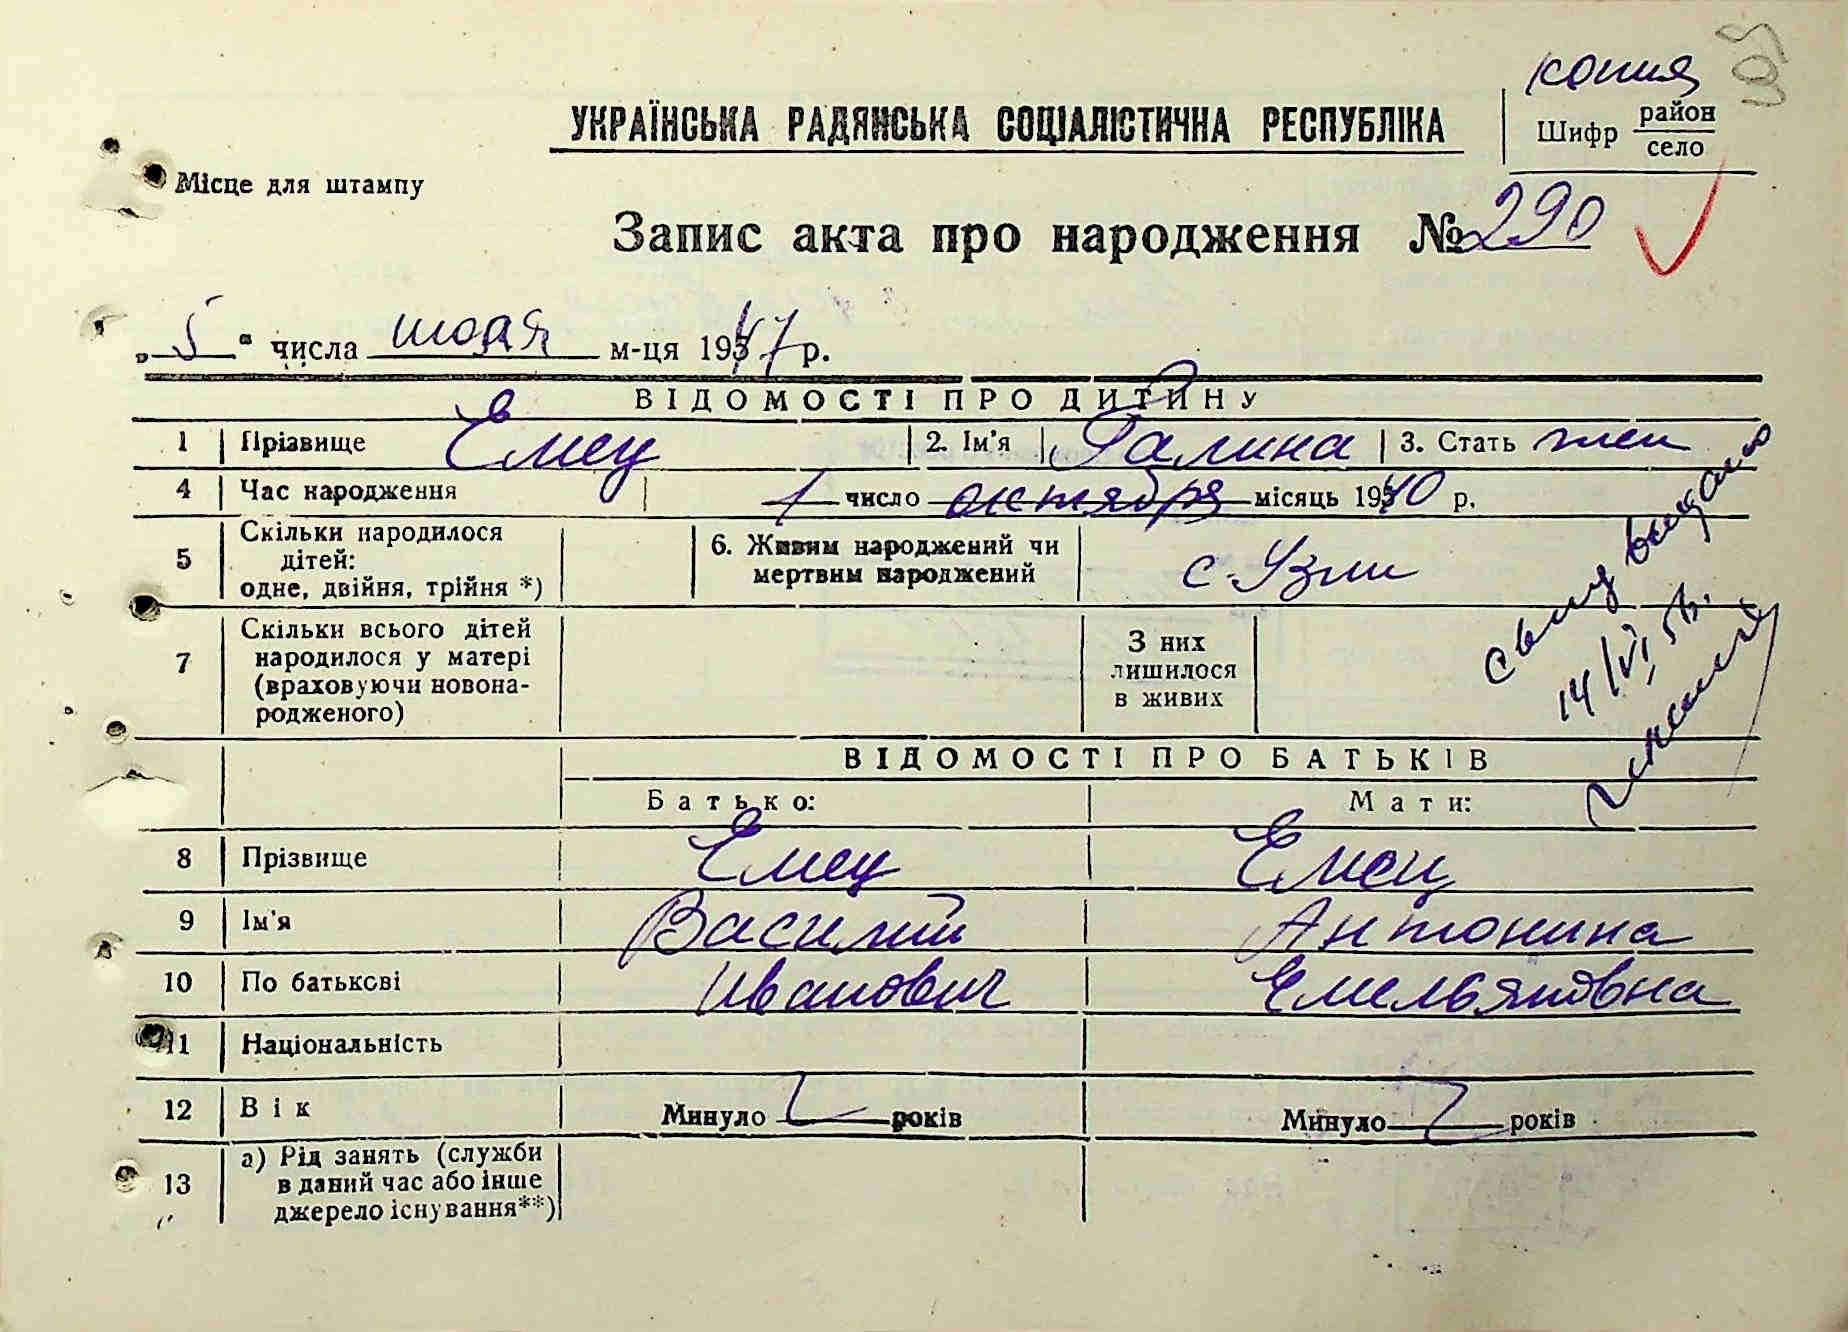 копия
УКРАЇНСЬКА РАДЯНСЬКА СОЦІАЛІСТИЧНА РЕСПУБЛІКА
Шифр район село
Місце для штампу
Запис акта про народження № 290
„ 5 " числа июля м-ця 1947 р.
ВІДОМОСТІ ПРО ДИТИНУ
1 Прізвище Емец 2. Ім'я Галина 3. Стать жен
4 Час народження 1 число октября місяць 1940 р.
5 Скільки народилося дітей: одне, двійня, трійня *) 6. Живим народжений чи мертвим народжений с. Узли
7 Скільки всього дітей народилося у матері (враховуючи новонародженого) З них лишилося в живих
14/VI 56.
ВІДОМОСТІ ПРО БАТЬКІВ
Батько: Мати:
8 Прізвище Емец Емец
9 Ім'я Василий Антонина
10 По батькові Иванович Емельяновна
11 Національність
12 Вік Минуло Z років Минуло Z років
13 а) Рід занять (служби в даний час або інше джерело існування**)